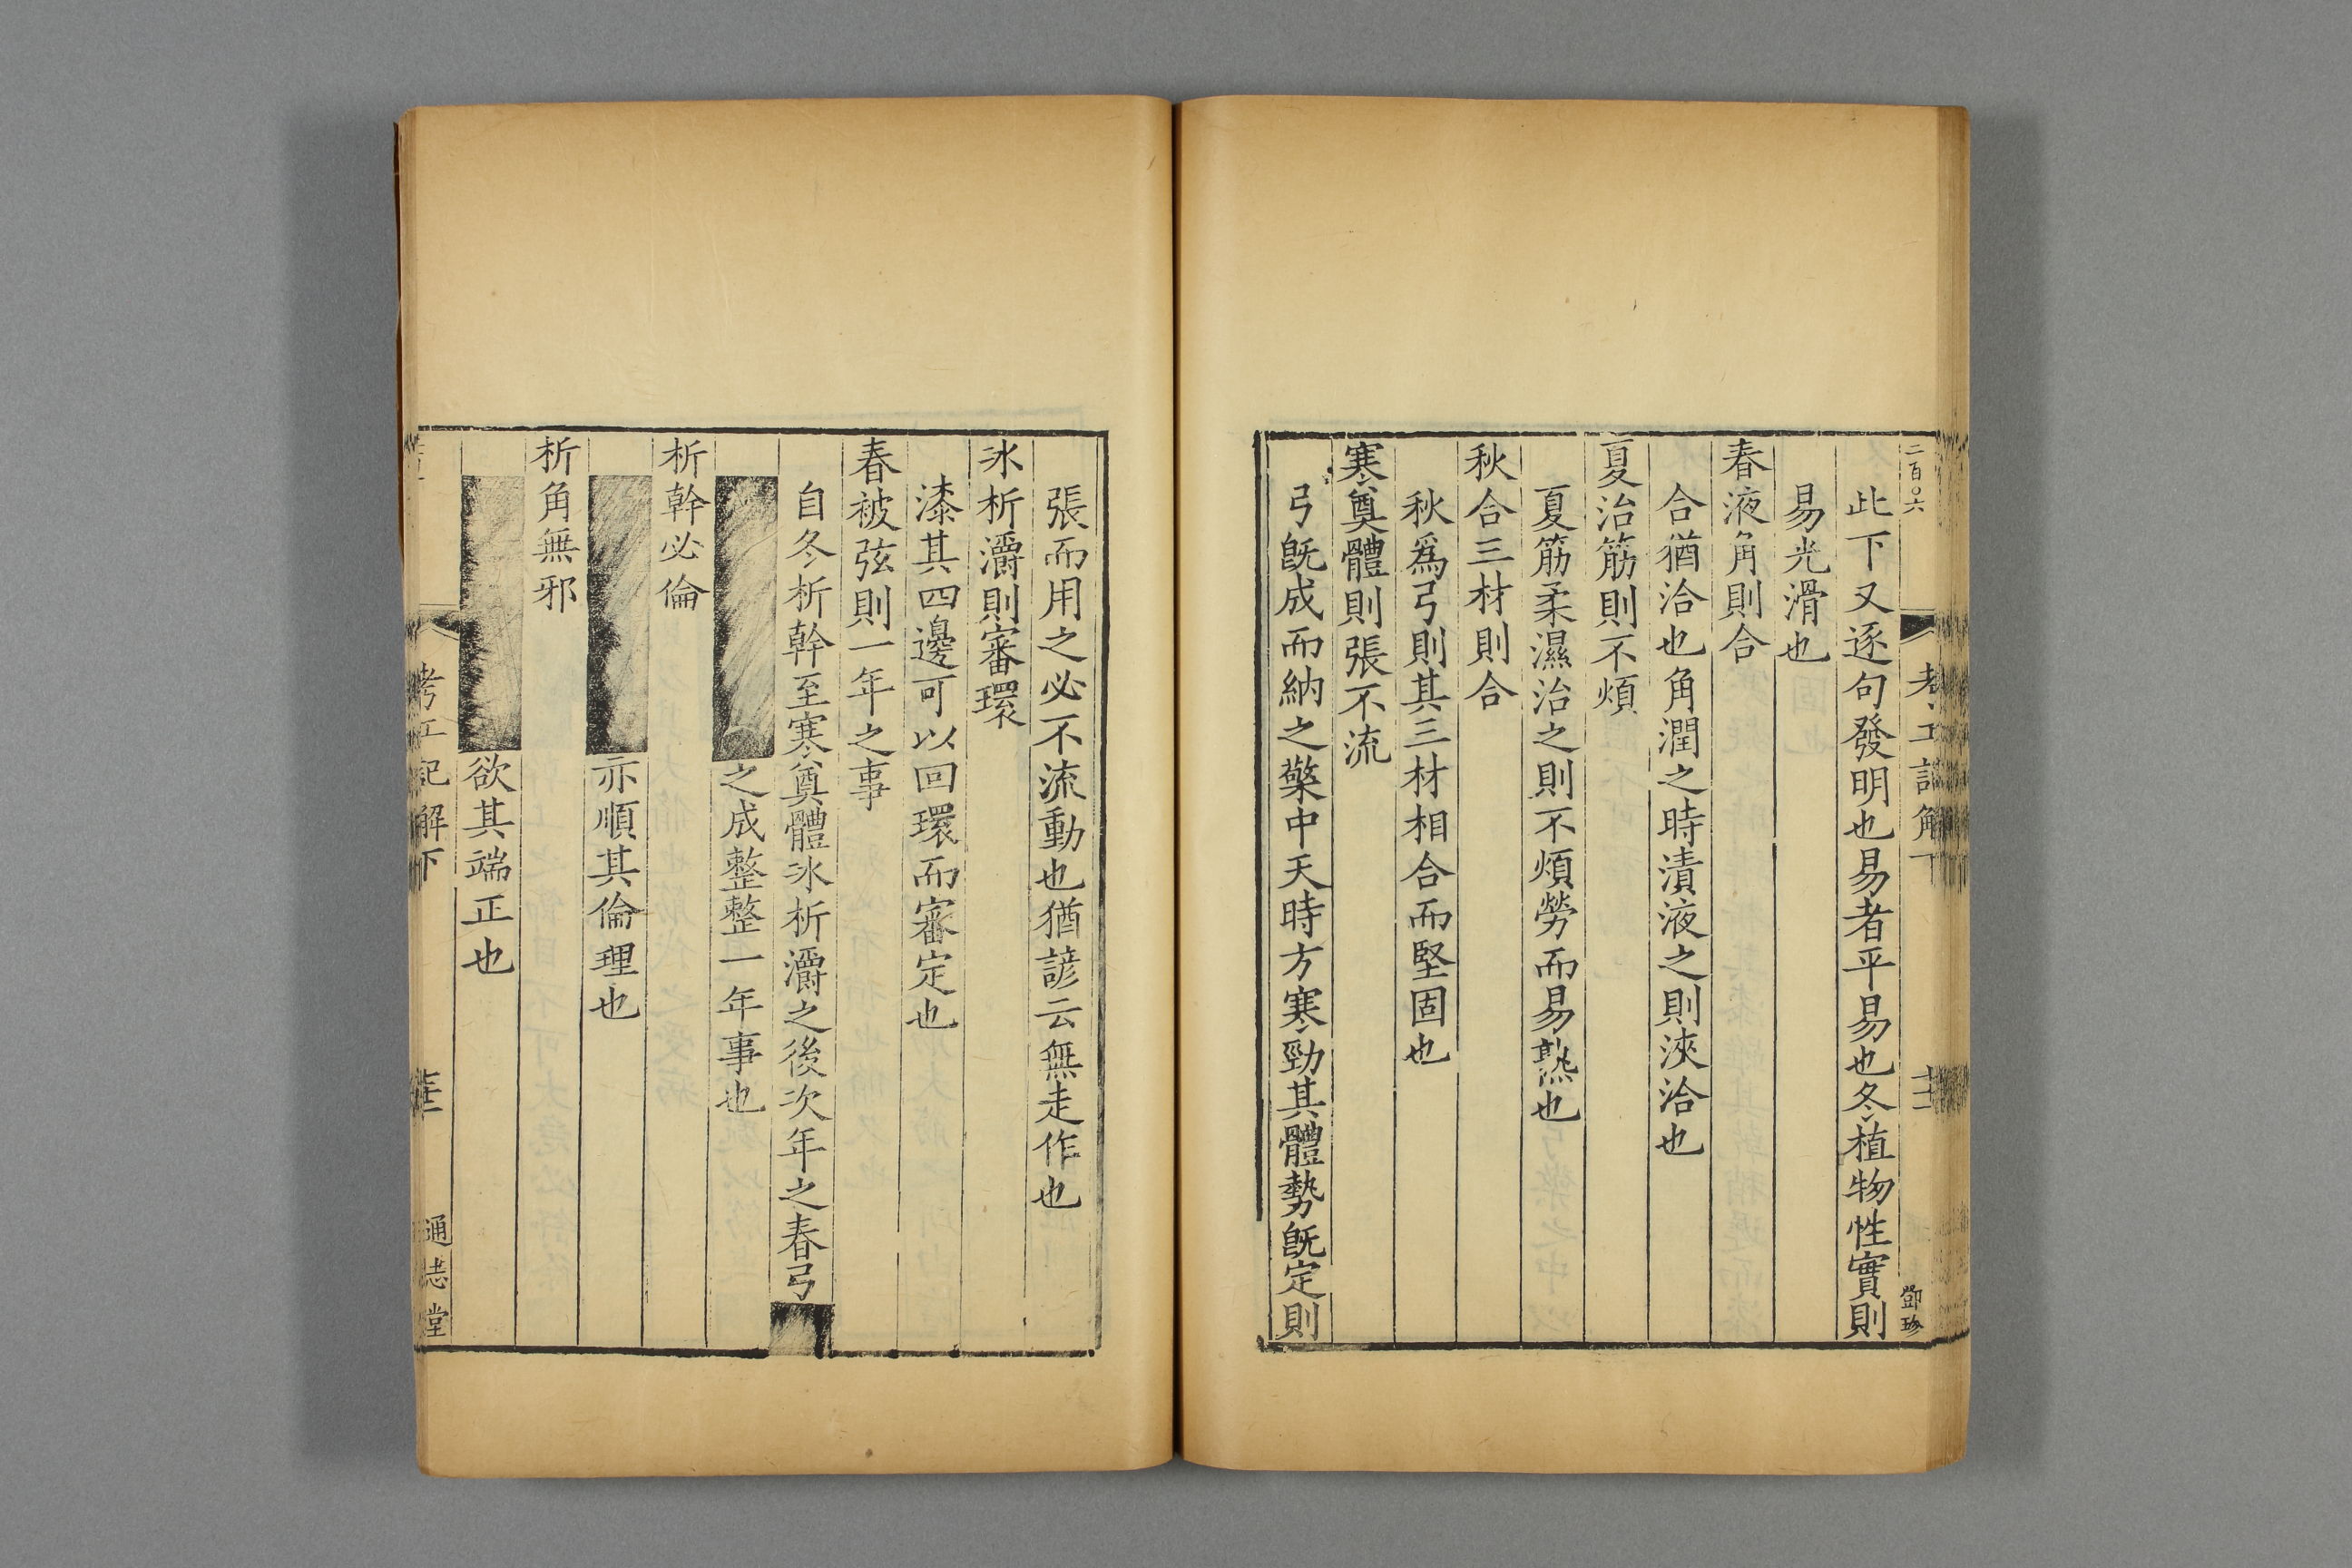 二百〇六
考工記解下
鄧珍
此下又逐句發明也易者平易也冬植物性實則
易光滑也
春液角則合
合猶洽也角潤之時漬液之則浹洽也
夏治筋則不煩
夏筋柔濕治之則不煩勞而易熟也
秋合三材則合
秋爲弓則其三材相合而堅固也
寒奠體則張不流
弓旣成而納之檠中天時方寒勁其體勢旣定則
張而用之必不流動也猶諺云無走作也
冰析灂則審環
漆其四邊可以回環而審定也
春被弦則一年之事
自冬析幹至寒奠體冰析灂之後次年之春弓
之成整整一年事也
析幹必倫
亦順其倫理也
析角無邪
欲其端正也
考工記解下
通志堂